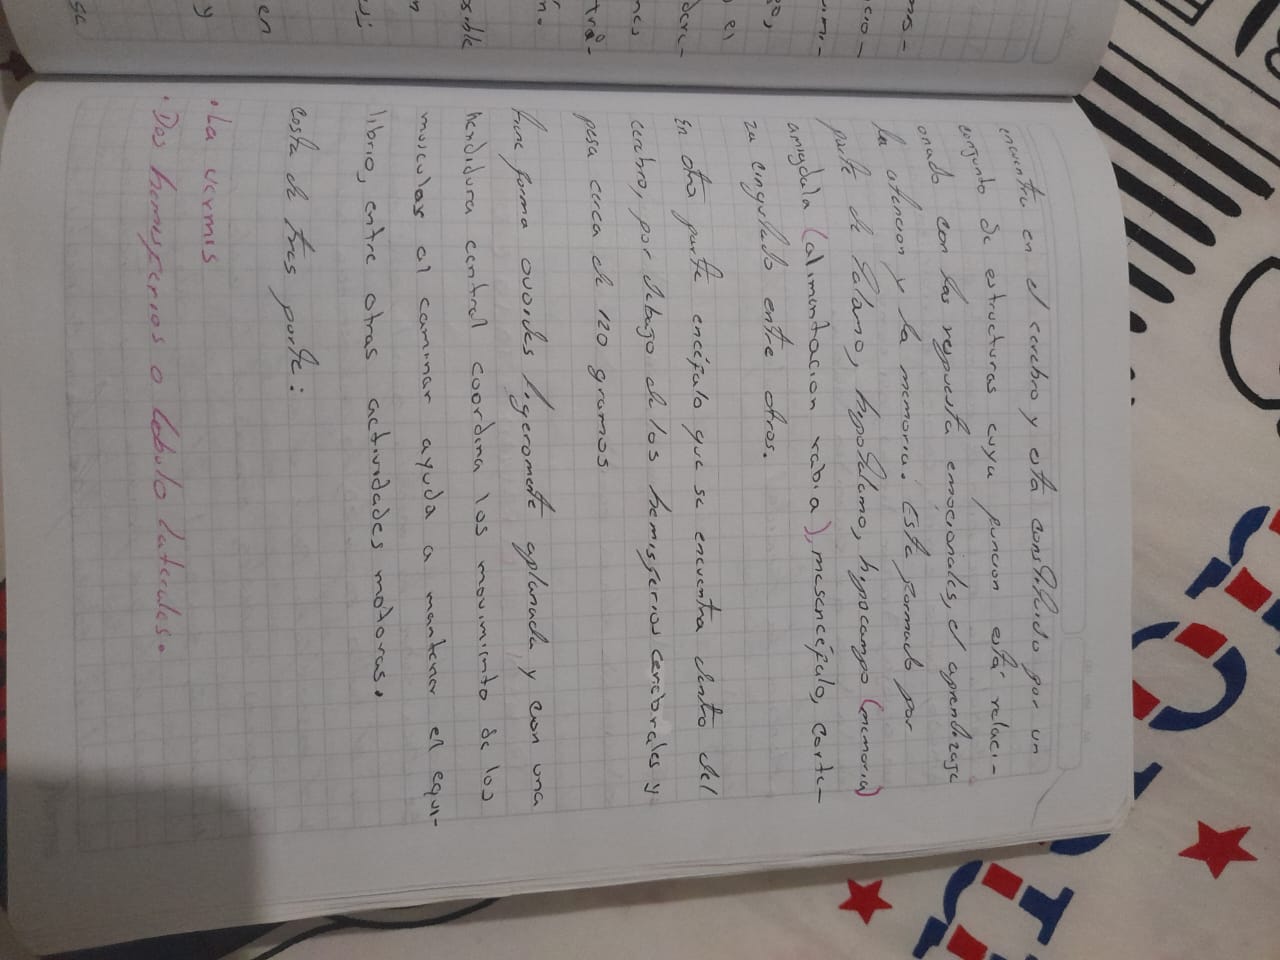 encuentra en el cerebro y está constituido por un
conjunto de estructuras cuya funcion está relaci-
onado con las respuesta emocionales, el aprendizaje
la atencion y la memoria. Esta formado por
parte de talamo, hypotalamo, hypocampo (memoria)
amigdala (alimentacion rabia), mesencéfalo, corte-
za cingulado entre otros.
En otra parte encéfalo que se encuentra dentro del
cerebro, por debajo de los hemisferios cerebrales y
pesa cerca de 120 gramos
tiene forma ovoides ligeromente aplanada, y con una
hendidura central coordina los movimiento de los
musculos al caminar ayuda a mantener el equi-
librio, entre otras actividades motoras.
costa de tres parte:
• La vermis
• Dos hemisferios o lobulo laterales.